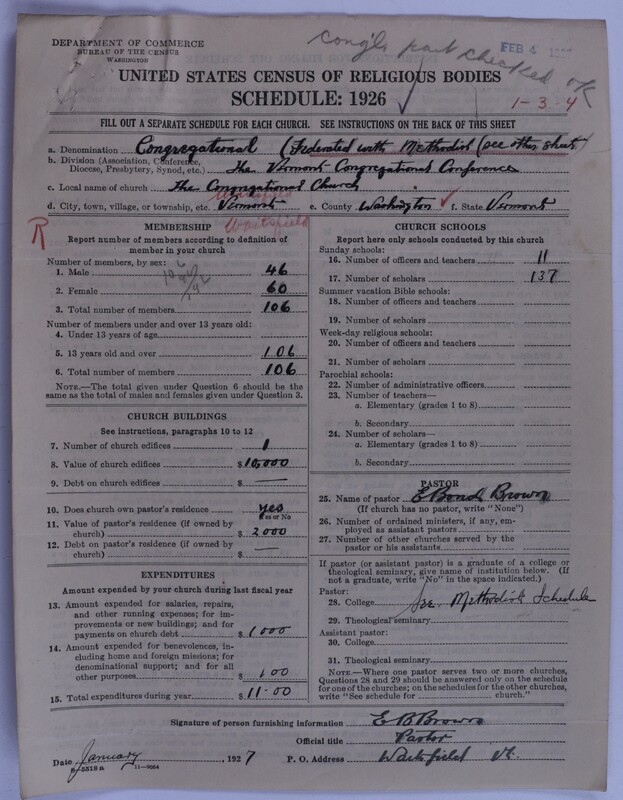 DEPARTMENT OF COMMERCE
BUREAU OF THE CENSUS
WASHINGTON
Cong'l part checked OK
FEB 4
UNITED STATES CENSUS OF RELIGIOUS BODIES
SCHEDULE: 1926
1-3 4
FILL OUT A SEPARATE SCHEDULE FOR EACH CHURCH. SEE INSTRUCTIONS ON THE BACK OF THIS SHEET
a. Denomination Congregational (Federated with Methodist (see other sheet)
b. Division (Association, Conference, Diocese, Presbytery, Synod, etc.) The Vermont Congregational Conference
c. Local name of church The Congregational Church
d. City, town, village, or township, etc. Vermont e. County Washington f. State Vermont
Waitsfield
R
MEMBERSHIP
Report number of members according to definition of
member in your church
Number of members, by sex:
1. Male 46
2. Female 60
3. Total number of members 106
Number of members under and over 13 years old:
4. Under 13 years of age
5. 13 years old and over 106
6. Total number of members 106
NOTE.—The total given under Question 6 should be the
same as the total of males and females given under Question 3.
CHURCH BUILDINGS
See instructions, paragraphs 10 to 12
7. Number of church edifices 1
8. Value of church edifices $10,000
9. Debt on church edifices $ —
10. Does church own pastor's residence yes
Yes or No
11. Value of pastor's residence (if owned by
church) $ 2000
12. Debt on pastor's residence (if owned by
church) $ —
EXPENDITURES
Amount expended by your church during last fiscal year
13. Amount expended for salaries, repairs,
and other running expenses; for im-
provements or new buildings; and for
payments on church debt $ 1000
14. Amount expended for benevolences, in-
cluding home and foreign missions; for
denominational support; and for all
other purposes $ 100
15. Total expenditures during year $ 11.00
CHURCH SCHOOLS
Report here only schools conducted by this church
Sunday schools:
16. Number of officers and teachers 11
17. Number of scholars 137
Summer vacation Bible schools:
18. Number of officers and teachers
19. Number of scholars
Week-day religious schools:
20. Number of officers and teachers
21. Number of scholars
Parochial schools:
22. Number of administrative officers
23. Number of teachers—
a. Elementary (grades 1 to 8)
b. Secondary
24. Number of scholars—
a. Elementary (grades 1 to 8)
b. Secondary
PASTOR
25. Name of pastor E Bond Brown
(If church has no pastor, write "None")
26. Number of ordained ministers, if any, em-
ployed as assistant pastors
27. Number of other churches served by the
pastor or his assistants
If pastor (or assistant pastor) is a graduate of a college or
theological seminary, give name of institution below. (If
not a graduate, write "No" in the space indicated.)
Pastor:
28. College See Methodist Schedule
29. Theological seminary
Assistant pastor:
30. College
31. Theological seminary
NOTE.—Where one pastor serves two or more churches,
Questions 28 and 29 should be answered only on the schedule
for one of the churches; on the schedules for the other churches,
write "See schedule for church."
Signature of person furnishing information E B Brown
Official title Pastor
Date January, 1927 P. O. Address Waitsfield Vt.
8-5518a 11-9064